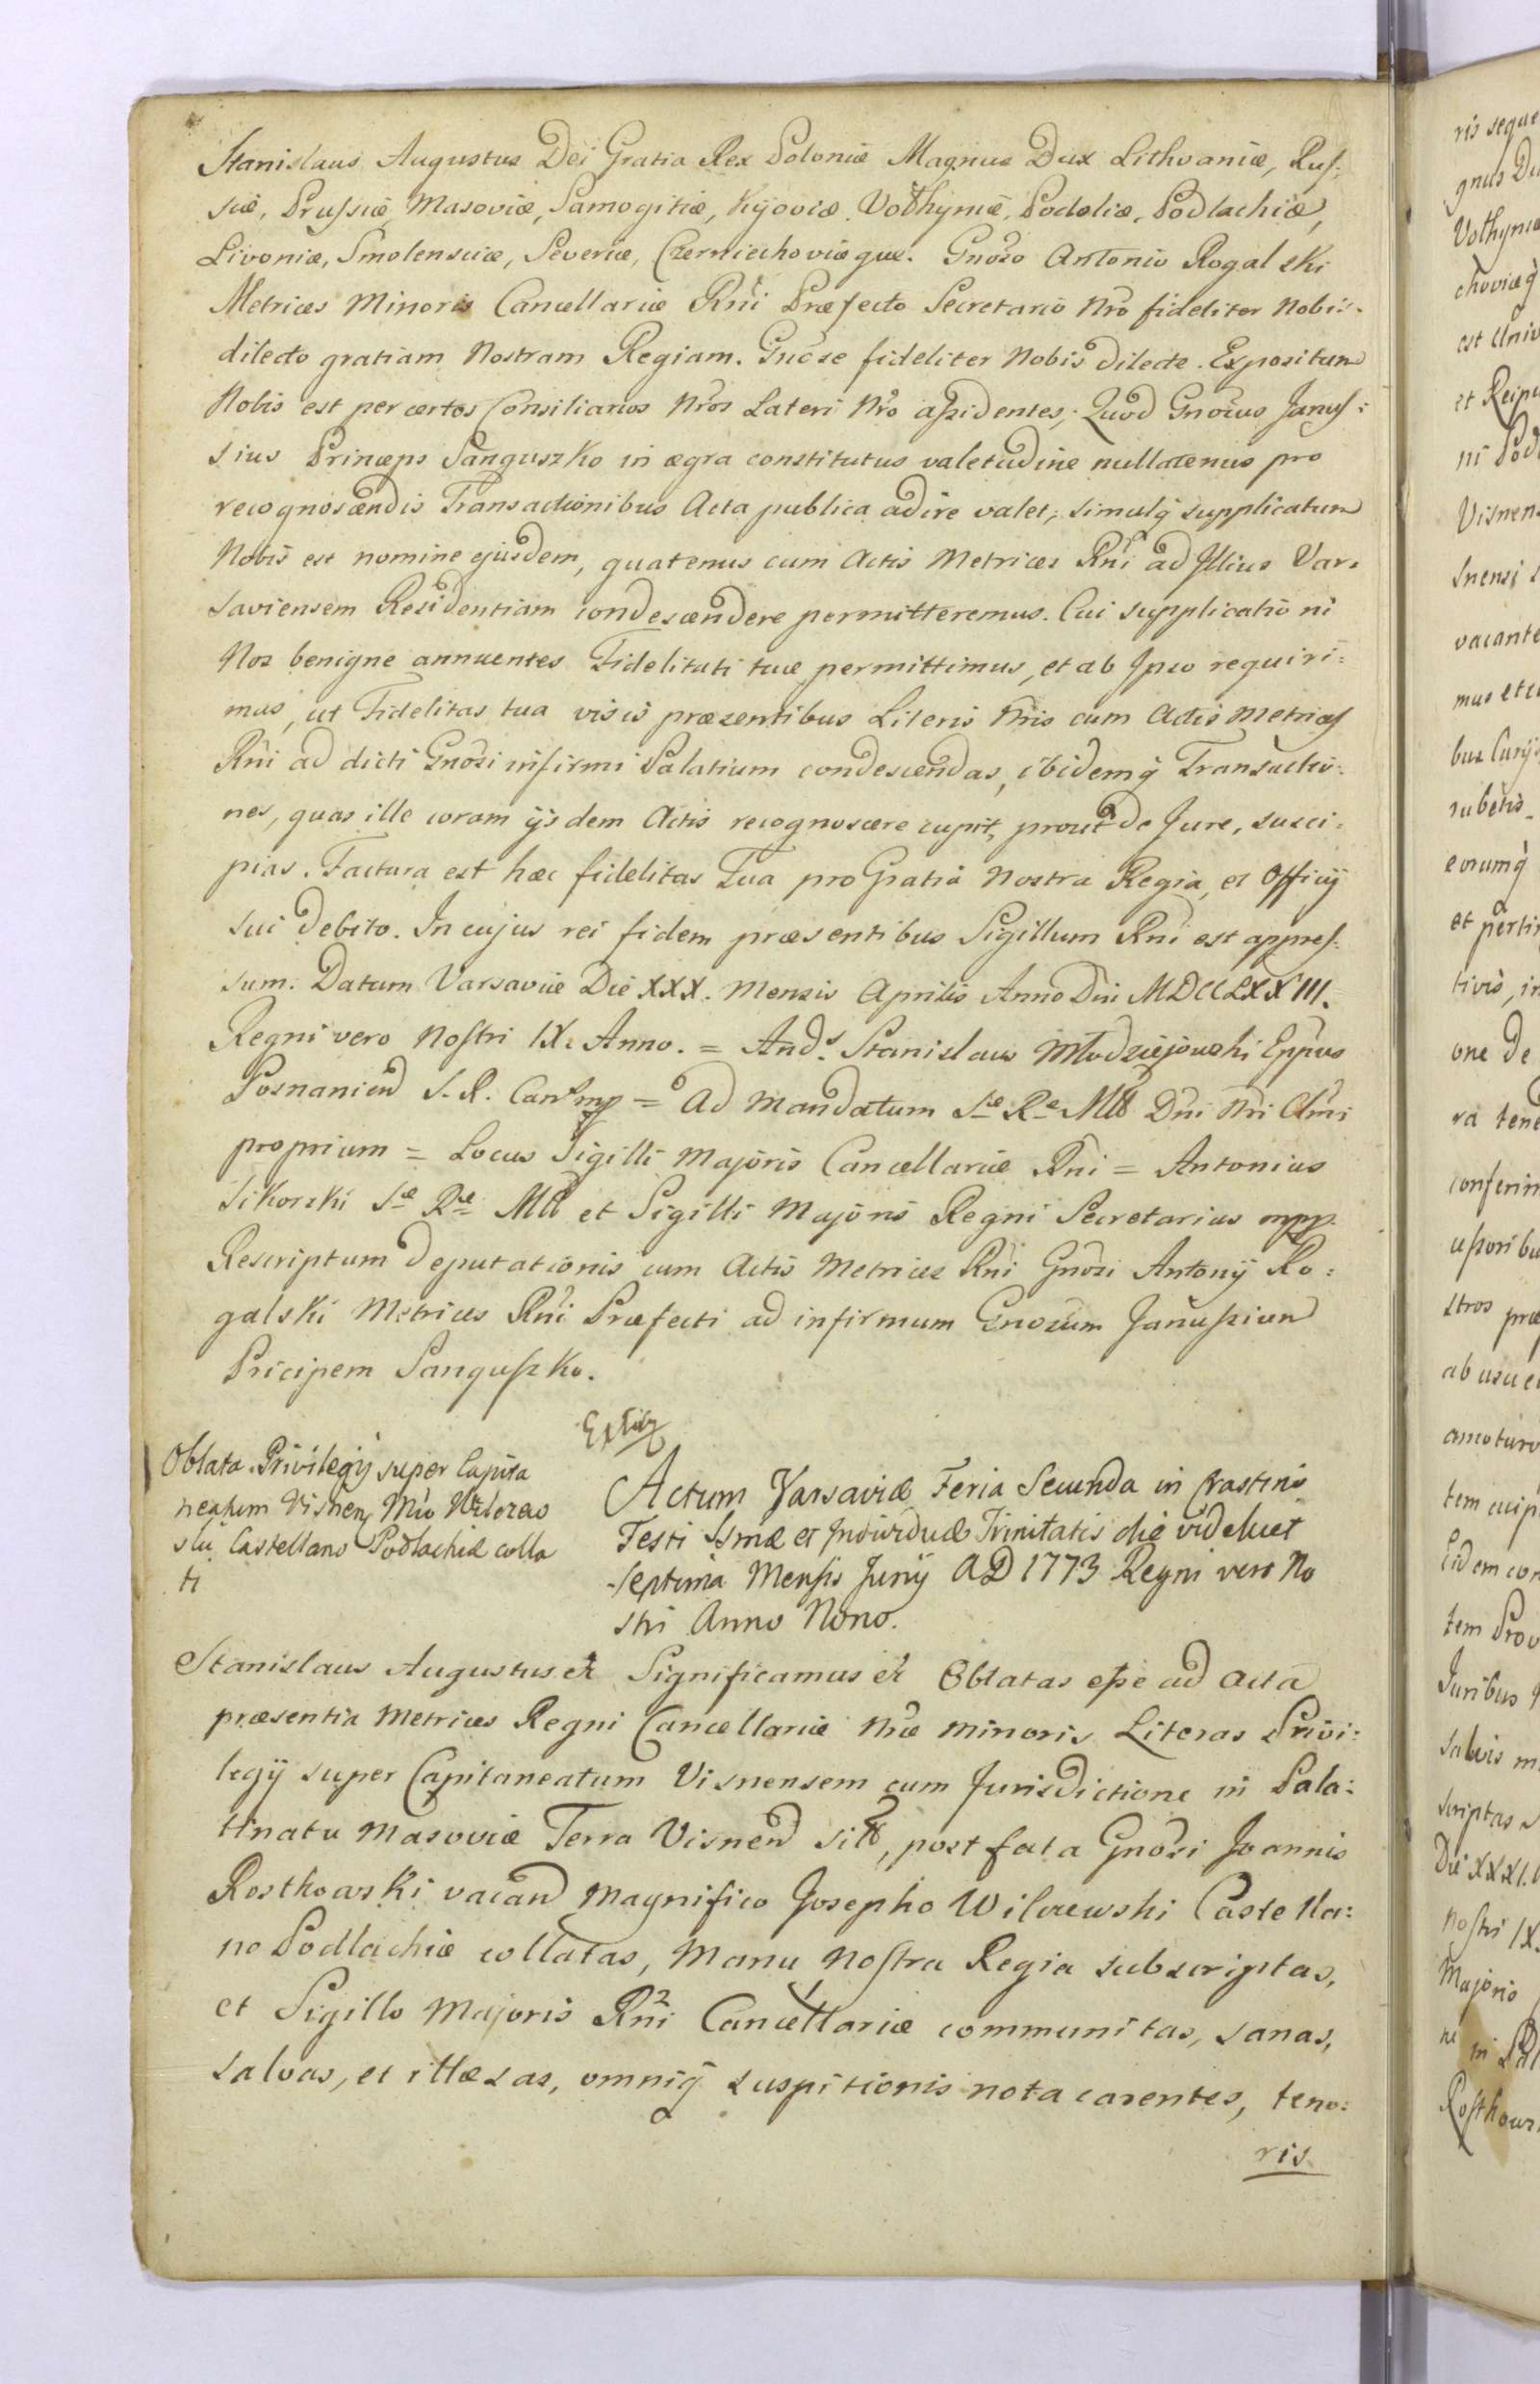 Stanislaus Augustus Dei Gratia Rex Poloniæ Magnus Dux Lithvaniæ, Rus-
siæ, Prussiæ, Masoviæ, Samogitiæ, Kijoviæ, Volhyniæ, Podoliæ, Podlachiæ,
Livoniæ, Smolensciæ, Severiæ, Czerniechoviæque. Gnoso Antonio Rogalski
Metrices Minoris Cancellariæ Rni Præfecto Secretario Nro fideliter Nobis
dilecto gratiam Nostram Regiam. Gnose fideliter Nobis dilecte. Expositum
Nobis est per certos Consiliarios Nros Lateri Nro assidentes, Quod Gnosus Janus-
sius Princeps Sanguszko in ægra constitutus valetudine nullatenus pro
recognoscendis Transactionibus Acta publica adire valet, simulq supplicatum
Nobis est nomine ejusdem, quatenus cum Actis Metrices Rni ad Illius Var-
saviensem Residentiam condescendere permitteremus. Cui supplicatio ni
Nos benigne annuentes Fidelitati tuæ permittimus, et ab Ipso requiri=
mus, ut Fidelitas tua visis præsentibus Literis Nris cum Actis Metrices
Rni ad dicti Gnosi infirmi Palatium condescendas, ibidemq Transactio=
nes, quas ille coram ijsdem Actis recognoscere cupit, prout de Jure, susci=
pias. Factura est hæc fidelitas Tua pro Gratia Nostra Regia, et Officij
sui debito. In cujus rei fidem præsentibus Sigillum Rni est appres-
sum. Datum Varsaviæ Die XXX. Mensis Aprilis Anno Dni MDCCLXXIII.
Regni vero Nostri IX. Anno. = Ands Stanislaus Młodziejowski Eppus
Posnanien S. R. Canr mp = Ad Mandatum Sæ Ræ Mtt Dni Nri Clmi
proprium = Locus Sigilli Majoris Cancellariæ Rni = Antonius
Sikorski Sæ Ræ Mtt et Sigilli Majoris Regni Secretarius mpp.
Rescriptum deputationis cum Actis Metrices Rni Gnosi Antonij Ro=
galski Metrices Rni Præfecti ad infirmum Gnosum Janussium
Pricipem Sanguszko.
Oblata Privilegij super Capita
neatum Visnen Mco Wilczew
ski Castellano Podlachiæ colla
ti
Actum Varsaviæ Feria Secunda in Crastino
Festi Ssmæ et Individuæ Trinitatis die videlicet
septima Mensis Junij AD 1773 Regni vero No
stri Anno Nono.
Stanislaus Augustus et Significamus et Oblatas esse ad Acta
præsentia Metrices Regni Cancellariæ Nræ Minoris Literas Privi=
legij super Capitaneatum Visnensem cum Jurisdictione in Pala=
tinatu Masoviæ Terra Visnen sitt, post fata Gnosi Joannis
Rostkowski vacan Magnifico Josepho Wilczewski Castella=
no Podlachiæ collatas, Manu Nostra Regia subscriptas,
et Sigillo Majoris Rni Cancellariæ communitas, sanas,
salvas, et illæsas, omniq suspitionis nota carentes, teno=
ris